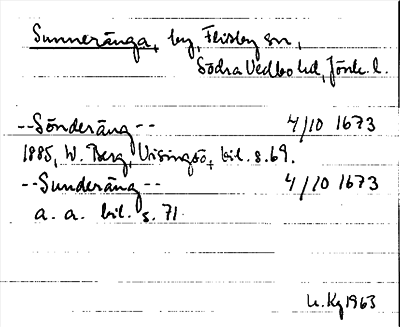 Sunneränga, by, Flisby sn,
Södra Vedbo hd, Jönk. l.
--Sönderäng-- 4/10 1673
1885, W. Berg, Visingsö, bil. s. 69.
--Sunderäng-- 4/10 1673
a. a. bil. s. 71.
Kg 1963